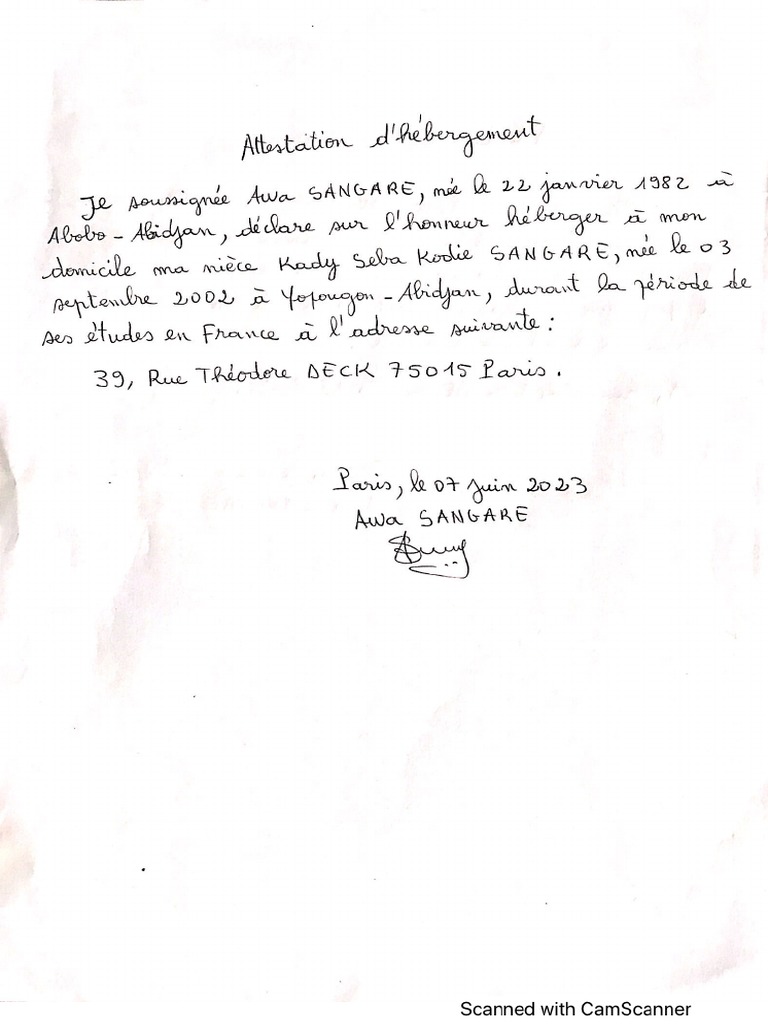 Attestation d'hébergement
Je soussignée Awa SANGARE, née le 22 janvier 1982 à
Abobo - Abidjan, déclare sur l'honneur héberger à mon
domicile ma nièce Kady Seba Kodie SANGARE, née le 03
septembre 2002 à Yopougon - Abidjan, durant la période de
ses études en France à l'adresse suivante :
39, Rue Théodore DECK 75015 Paris.
Paris, le 07 Juin 2023
Awa SANGARE
Scanned with CamScanner